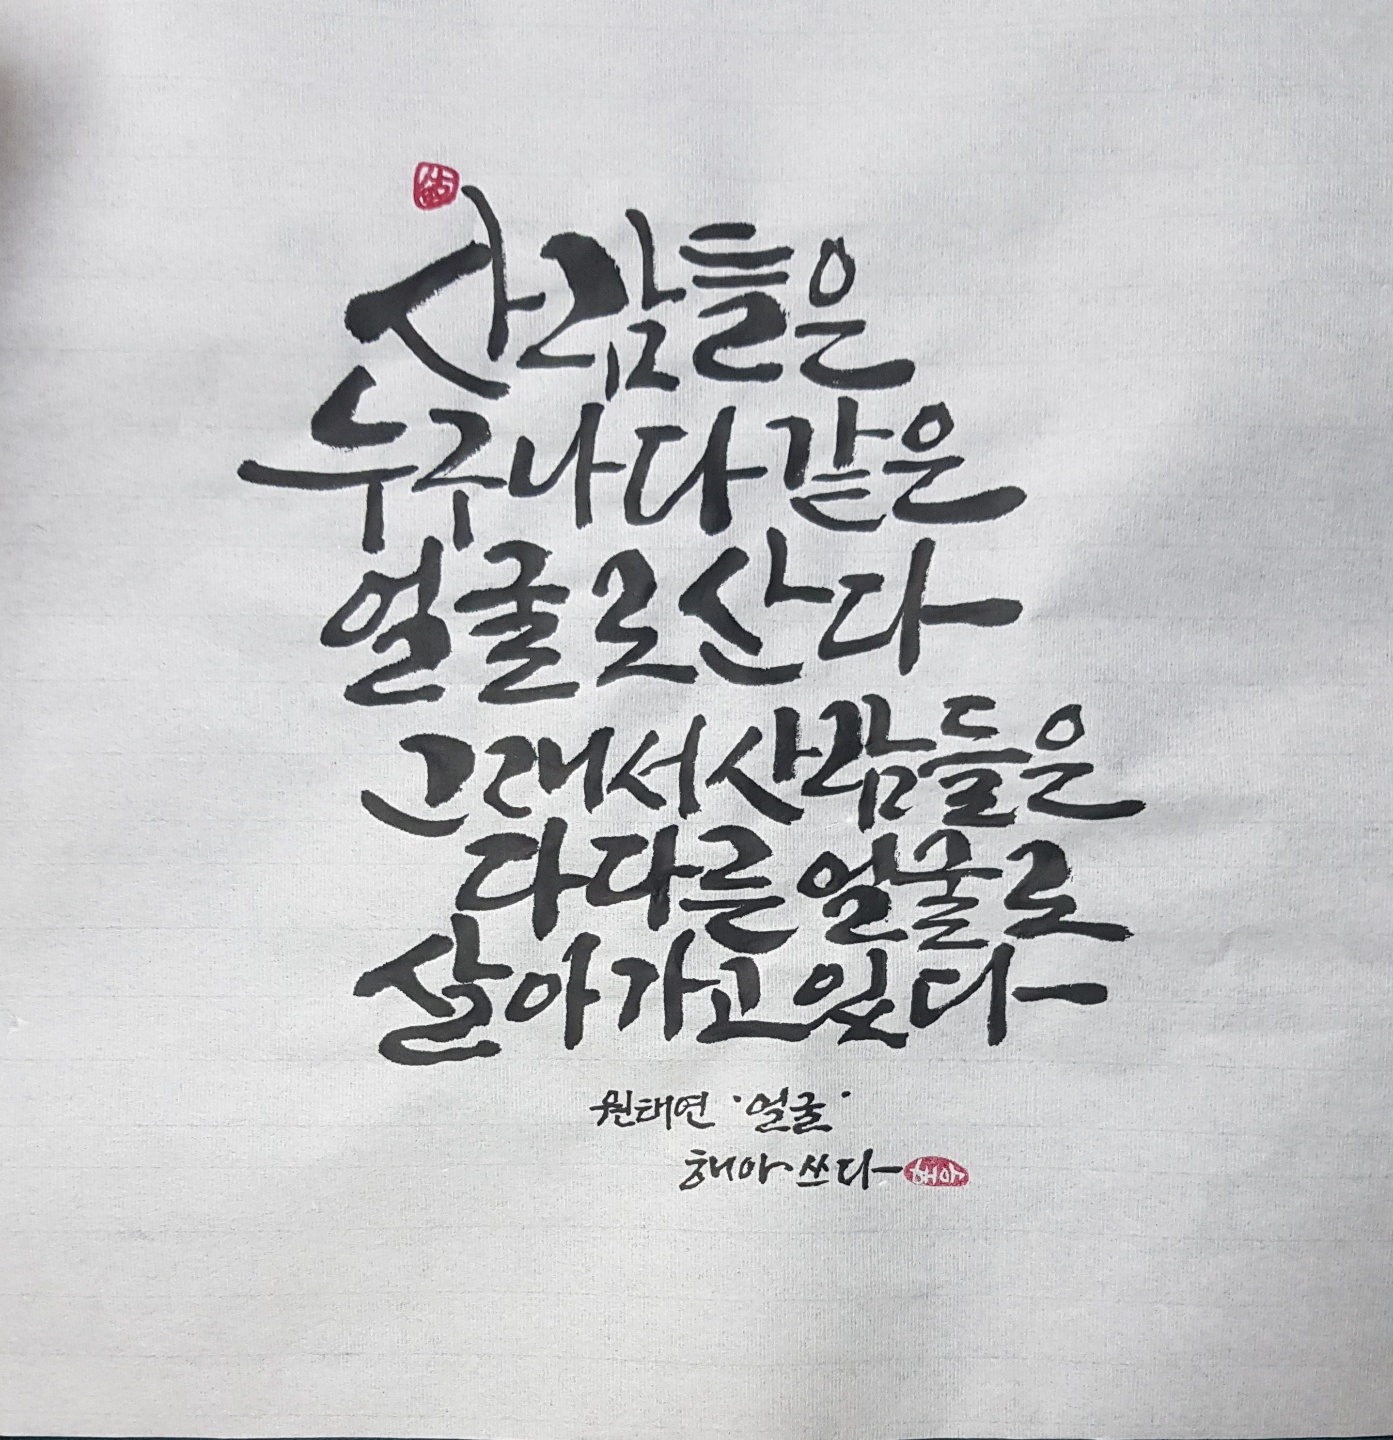 사람들은
누구나 다 같은
얼굴로 산다
그래서 사람들은
다 다른 얼굴로
살아가고 있다
원태연 '얼굴'
해아 쓰다 해아